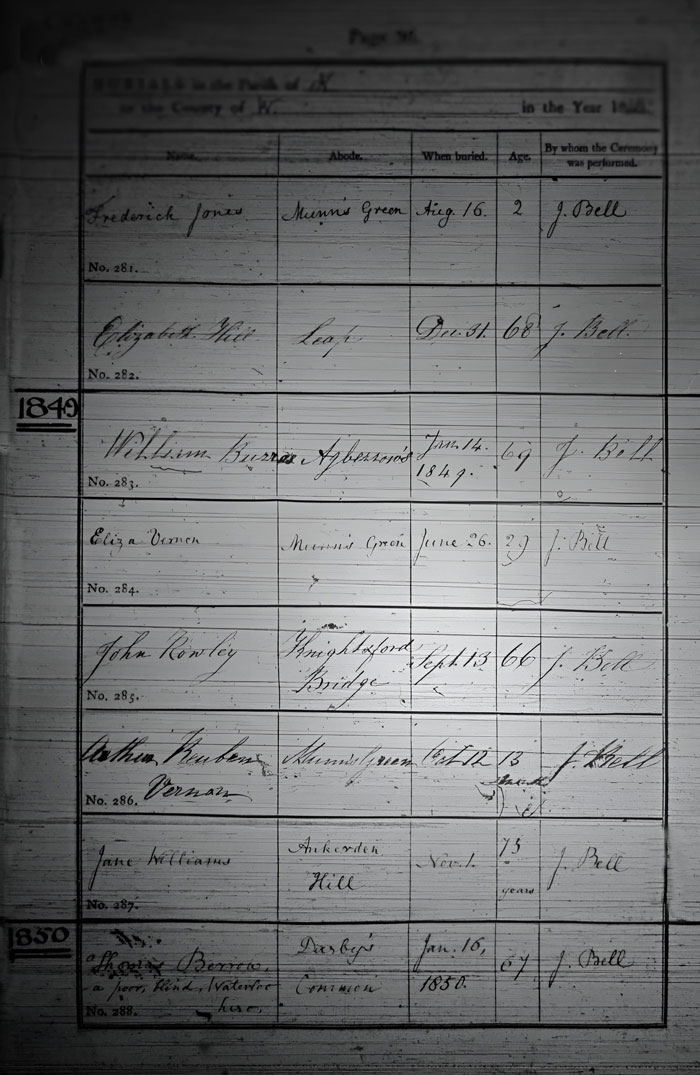 Page 36.
BURIALS in the Parish of
in the County of W. in the Year 18
Name. Abode. When buried. Age. By whom the Ceremony
was performed.
Frederick Jones Munn's Green Aug. 16. 2 J. Bell
No. 281.
Elizabeth Hill Leap Dec. 31. 68 J. Bell.
No. 282.
1849
William Burros Agberrow's Jan. 14. 69 J. Bell
1849.
No. 283.
Eliza Vernon Munn's Green June 26. 29 J. Bell
No. 284.
John Rowley Knightsford Sept. 13 66 J. Bell
Bridge
No. 285.
Arthur Reuben Munn's Green Oct. 12 13 J. Bell
Vernon
No. 286.
Jane Williams Ankerden Nov. 1. 75 J. Bell
Hill years
No. 287.
1850
Thomas Berrow, Darby's Jan. 16, 67 J. Bell
a poor, blind, Waterloo Common 1850.
No. 288. hero.